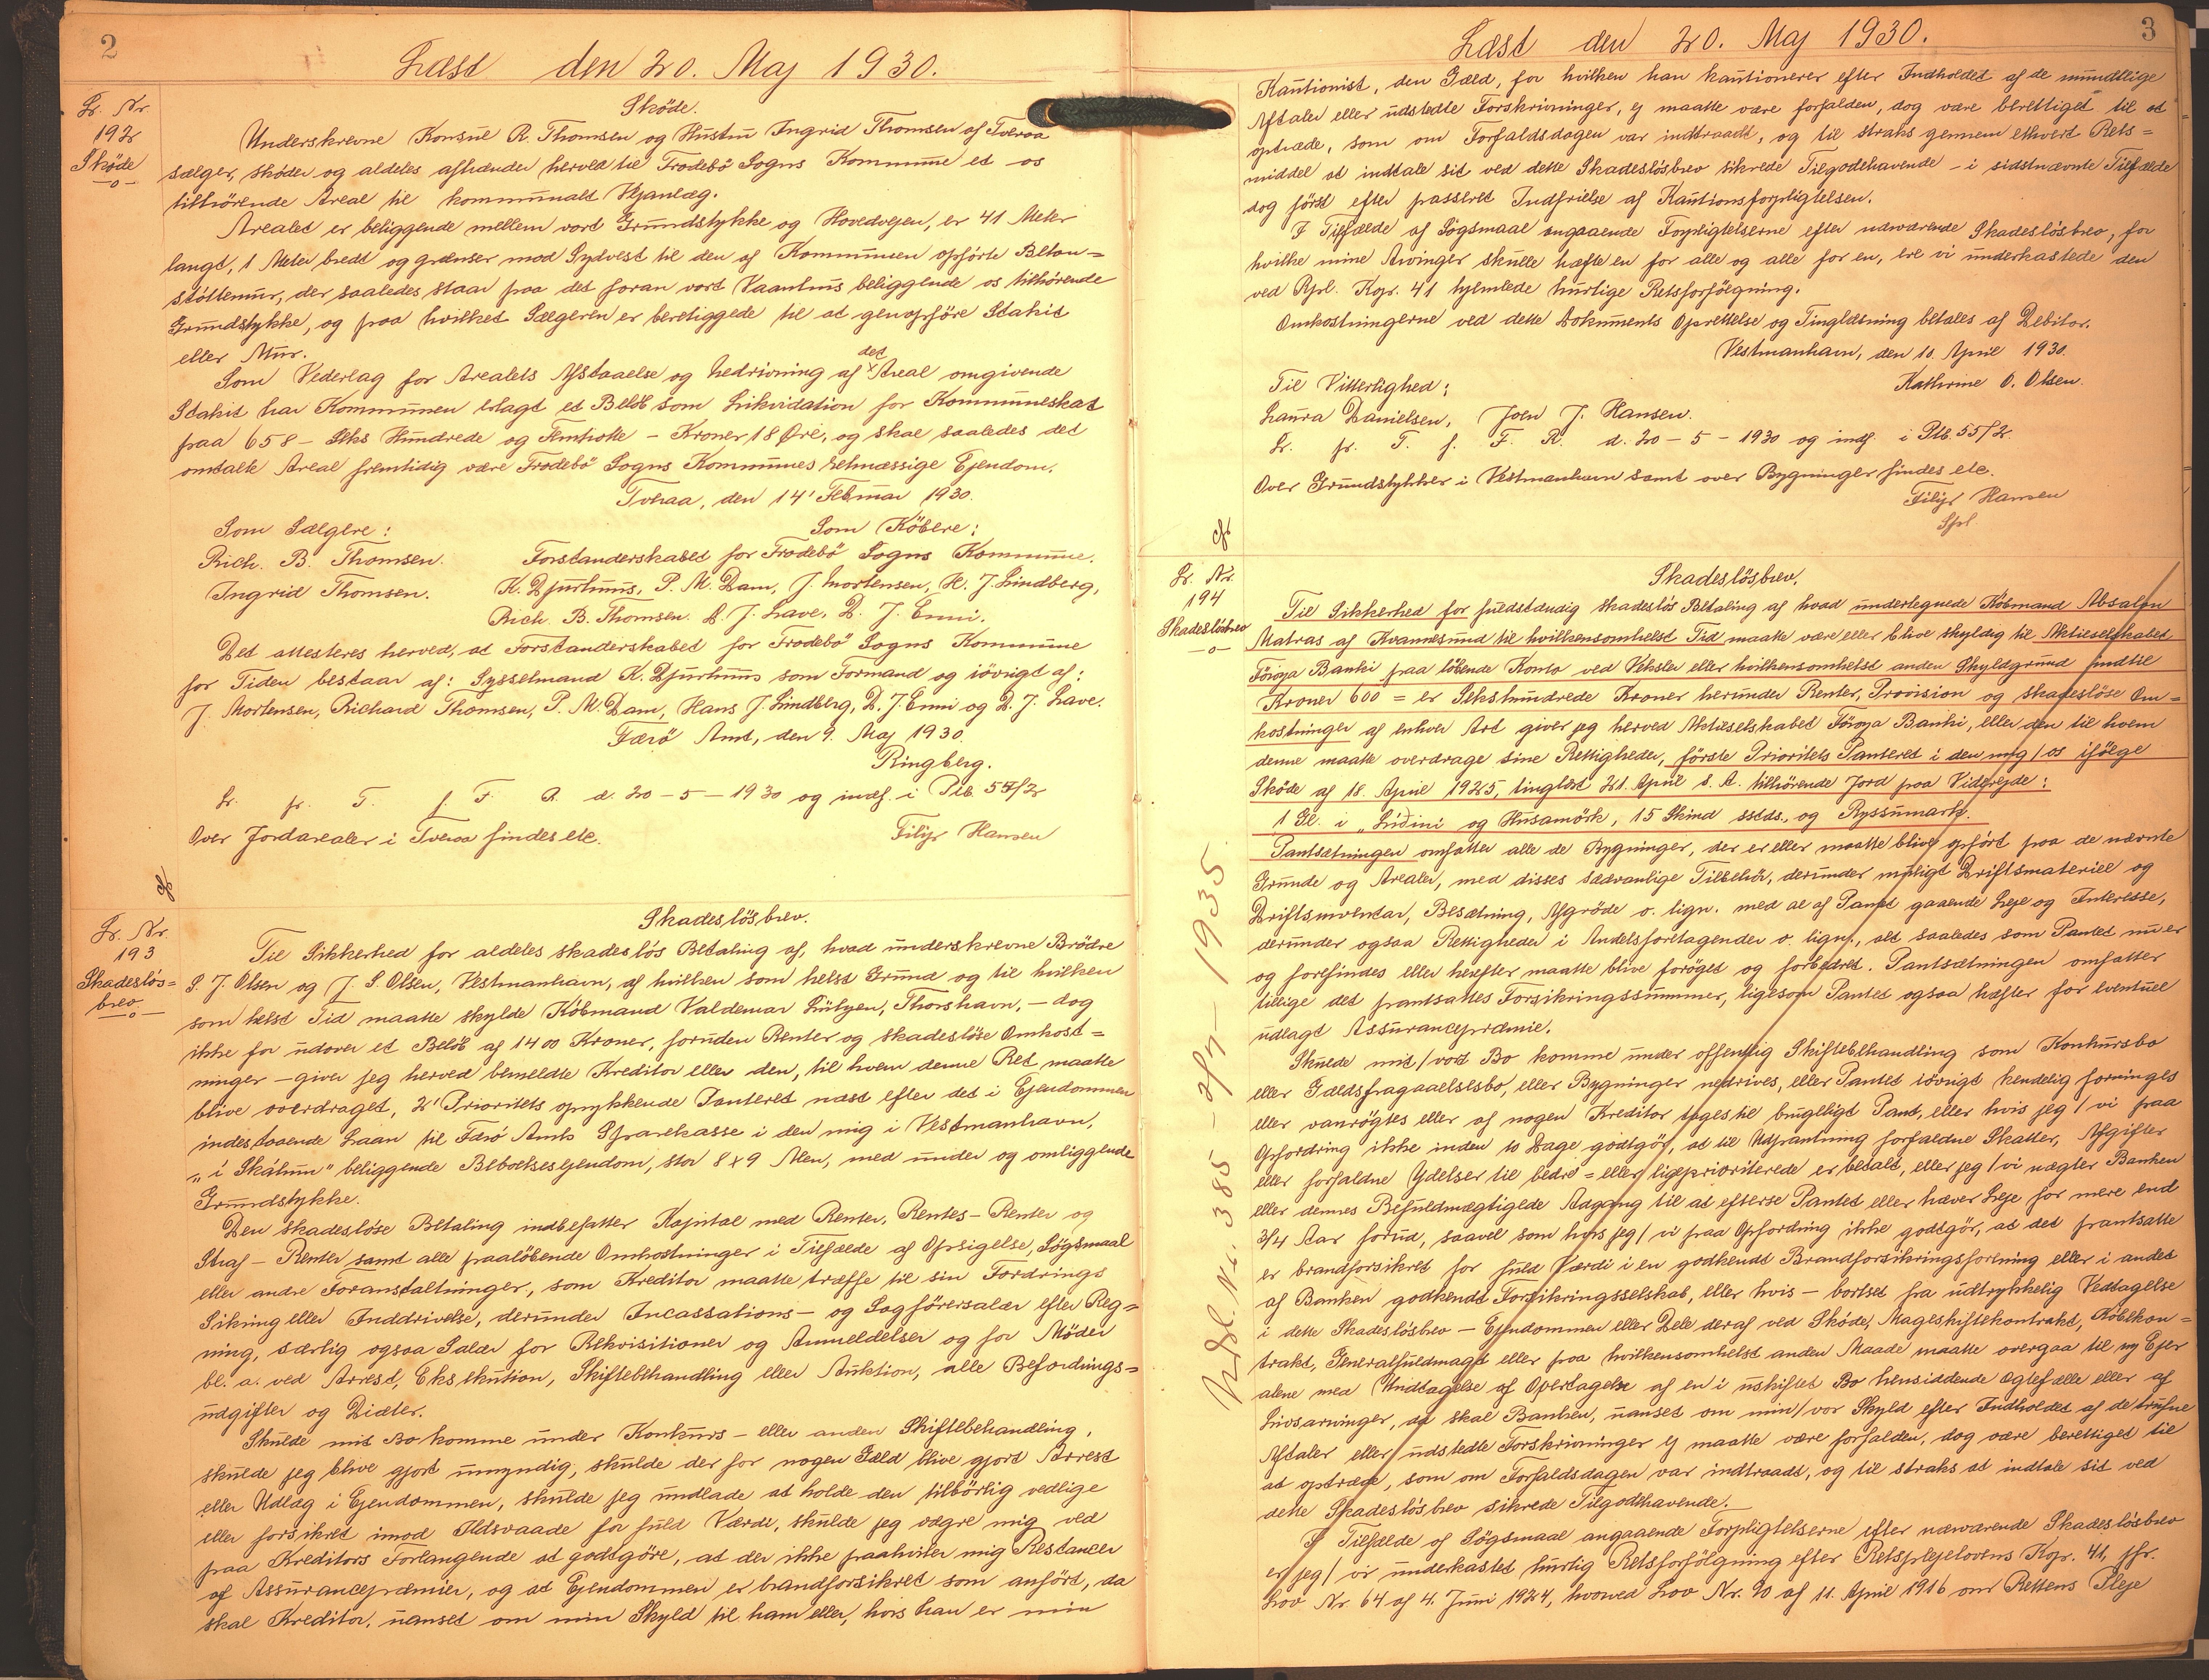 2
Læst den 20. Maj 1930.
Lr. Nr.
192
Sköde
—o—
Sköde.
Underskrevne Konsul R. Thomsen og Hustru Ingrid Thomsen af Tveraa
sælger, sköder og aldeles afhænder herved til Frodebö Sogns Kommune et os
tilhörende Areal til kommunalt Vejanlæg.
Arealet er beliggende mellem vort Grundstykke og Hovedvejen, er 41 Meter
langt, 1 Meter bredt og grænser mod Sydvest til den af Kommunen opförte Beton=
stöttemur, der saaledes staar paa det foran vort Vaanhus beliggende os tilhörende
Grundstykke, og paa hvilket Sælgeren er berettiggede til at genopföre Stakit
eller Mur.
Som Vederlag for Arealets Afstaaelse og Nedrivning af det Areal omgivende
Stakit har Kommunen erlagt et Belöb som Likvidation for Kommuneskat
paa 658 – Seks Hundrede og Femtiotte – Kroner 18 Øre, og skal saaledes det
omtalte Areal fremtidig være Frodebö Sogns Kommunes retmæssige Ejendom.
Tveraa, den 14' Februar 1930.
Som Sælgere: Som Köbere:
Rich. B. Thomsen. Forstanderskabet for Frodebö Sogns Kommune.
Ingrid Thomsen. K. Djurhuus, P. M. Dam, J. Mortensen, H. J. Lindberg,
Rich. B. Thomsen. D. J. Lave, D. J. Enni.
Det attesteres herved, at Forstanderskabet for Frodebö Sogns Kommune
for Tiden bestaar af: Sysselmand K. Djurhuus som Formand og iövrigt af:
J. Mortensen, Richard Thomsen, P. M. Dam, Hans J. Lindberg, D. J. Enni og D. J. Lave.
Færö Amt, den 9. Maj 1930.
Ringberg.
Lr. pr. T. f. F. R. d. 20–5–1930 og indf. i Ptb. 55/2
Over Jordarealer i Tveraa findes etc. Filip Hansen
Lr. Nr.
193
Skadeslös=
brev
—o—
Skadeslösbrev.
Til Sikkerhed for aldeles skadeslös Betaling af, hvad underskrevne Brödre
S. J. Olsen og J. S. Olsen, Vestmanhavn, af hvilken som helst Grund og til hvilken
som helst Tid maatte skylde Köbmand Valdemar Lützen, Thorshavn, – dog
ikke for udover et Belöb af 1400 Kroner, foruden Renter og skadeslöse Omkost=
ninger – giver jeg herved bemeldte Kreditor eller den, til hvem denne Ret maatte
blive overdraget, 2' Prioritets oprykkende Panteret næst efter det i Ejendommen
indestaaende Laan til Færö Amts Sparekasse i den mig i Vestmanhavn,
„í Skálum" beliggende Beboelsesejendom, stor 8 x 9 Alen, med under og omliggende
Grundstykke.
Den skadeslöse Betaling indbefatter Kapital med Renter, Rentes-Renter og
Straf-Renter samt alle paalöbende Omkostninger i Tilfælde af Opsigelse, Sögsmaal
eller andre Foranstaltninger, som Kreditor maatte træffe til sin Fordrings
Sikring eller Inddrivelse, derunder Incassations- og Sagförersalær efter Reg=
ning, særlig ogsaa Salær for Rekvisitioner og Anmeldelser og for Möder
bl. a. ved Arrest, Eksekution, Skiftebehandling eller Auktion, alle Befordrings=
udgifter og Diæter.
Skulde mit Bo komme under Konkurs- eller anden Skiftebehandling,
skulde jeg blive gjort umyndig, skulde der for nogen Gæld blive gjort Arrest
eller Udlæg i Ejendommen, skulde jeg undlade at holde den tilbörlig vedlige
eller forsikret imod Ildsvaade for fuld Værdi, skulde jeg vægre mig ved
paa Kreditors Forlangende at godtgöre, at der ikke paahviler mig Restancer
af Assurancepræmier, og at Ejendommen er brandforsikret som anfört, da
skal Kreditor, uanset om min Skyld til ham eller, hvis han er min
3
Læst den 20. Maj 1930.
Kautionist, den Gæld, for hvilken han kautionerer efter Indholdet af de mundtlige
Aftaler eller udstedte Forskrivninger, ej maatte være forfalden, dog være berettiget til at
optræde, som om Forfaldsdagen var indtraadt, og til straks gennem ethvert Rets=
middel at indtale sit ved dette Skadeslösbrev sikrede Tilgodehavende – i sidstnævnte Tilfælde
dog först efter passeret Indfrielse af Kautionsforpligtelsen.
I Tilfælde af Sögsmaal angaaende Forpligtelserne efter nærværende Skadeslösbrev, for
hvilke mine Arvinger skulle hæfte en for alle og alle for en, ere vi underkastede den
ved Rpl. Kap. 41 hjemlede hurtige Retsforfölgning.
Omkostningerne ved dette Dokuments Oprettelse og Tinglæsning betales af Debitor.
Vestmanhavn, den 10. April 1930.
Til Vitterlighed: Kathrine O. Olsen.
Laura Danielsen, Joen J. Hansen.
Lr. pr. T. f. F. R. d. 20–5–1930 og indf. i Ptb. 55/2.
Over Grundstykker i Vestmanhavn samt over Bygninger findes etc.
Filip Hansen
Spl.
Lr. Nr.
194
Skadeslösbrev
—o—
Skadeslösbrev.
Til Sikkerhed for fuldstændig skadeslös Betaling af hvad undertegnede Köbmand Absalon
Matras af Kvannesund til hvilkensomhelst Tid maatte være eller blive skyldig til Aktieselskabet
Föroya Banki paa löbende Konto ved Veksler eller hvilkensomhelst anden Skyldgrund indtil
Kroner 600 = er Sekshundrede Kroner herunder Renter, Provision og skadeslöse Om=
kostninger af enhver Art giver jeg herved Aktieselskabet Föroya Banki, eller den til hvem
denne maatte overdrage sine Rettigheder, förste Prioritets Panteret i den mig/os ifölge
Sköde af 18. April 1925, tinglæst 21. April s. A. tilhörende Jord paa Viderejde:
1 Gl. i „Lidini og Husamörk, 15 Skind sstds., og Ryssumark.
Pantsætningen omfatter alle de Bygninger, der er eller maatte blive opfört paa de nævnte
Grunde og Arealer, med disses sædvanlige Tilbehör, derunder muligt Driftsmateriel og
Driftsinventar, Besætning, Afgröde o. lign. med al af Pantet gaaende Leje og Interesse,
derunder ogsaa Rettigheder i Andelsforetagender o. lign., alt saaledes som Pantet nu er
og forefindes eller herefter maatte blive foröget og forbedret. Pantsætningen omfatter
tillige det pantsattes Forsikringssummer, ligesom Pantet ogsaa hæfter for eventuel
udlagt Assurancepræmie.
Skulde mit/vort Bo komme under offentlig Skiftebehandling som Konkursbo
eller Gældsfragaaelsesbo, eller Bygninger nedrives, eller Pantet iövrigt kendelig forringes
eller vanrögtes eller af nogen Kreditor tages til brugeligt Pant, eller hvis jeg/vi paa
Opfordring ikke inden 10 Dage godtgör, at til Udpantning forfaldne Skatter, Afgifter
eller forfaldne Ydelser til bedre= eller ligeprioriterede er betalt, eller jeg/vi nægter Banken
eller dennes Befuldmægtigede Adgang til at efterse Pantet eller hæver Leje for mere end
3/4 Aar forud, saavel som hvis jeg/vi paa Opfordring ikke godtgör, at det pantsatte
er brandforsikret for fuld Værdi i en godkendt Brandforsikringsforening eller i andet
af Banken godkendt Forsikringsselskab, eller hvis – bortset fra udtrykkelig Vedtagelse
i dette Skadeslösbrev – Ejendommen eller Dele deraf ved Sköde, Mageskiftekontrakt, Köbekon=
trakt, Generalfuldmagt eller paa hvilkensomhelst anden Maade maatte overgaa til ny Ejer
alene med Undtagelse af Overtagelse af en i uskiftet Bo hensiddende Ægtefælle eller af
Livsarvinger, da skal Banken, uanset om min/vor Skyld efter Indholdet af de trufne
Aftaler eller udstedte Forskrivninger ej maatte være forfalden, dog være berettiget til
at optræde, som om Forfaldsdagen var indtraadt, og til straks at indtale sit ved
dette Skadeslösbrev sikrede Tilgodehavende.
I Tilfælde af Sögsmaal angaaende Forpligtelserne efter nærværende Skadeslösbrev
er jeg/vi underkastet hurtig Retsforfölgning efter Retsplejelovens Kap. 41, jfr.
Lov Nr. 64 af 4. Juni 1924, hvorved Lov Nr. 90 af 11. April 1916 om Rettens Pleje
Udsl. Nr. 385 – – 1935